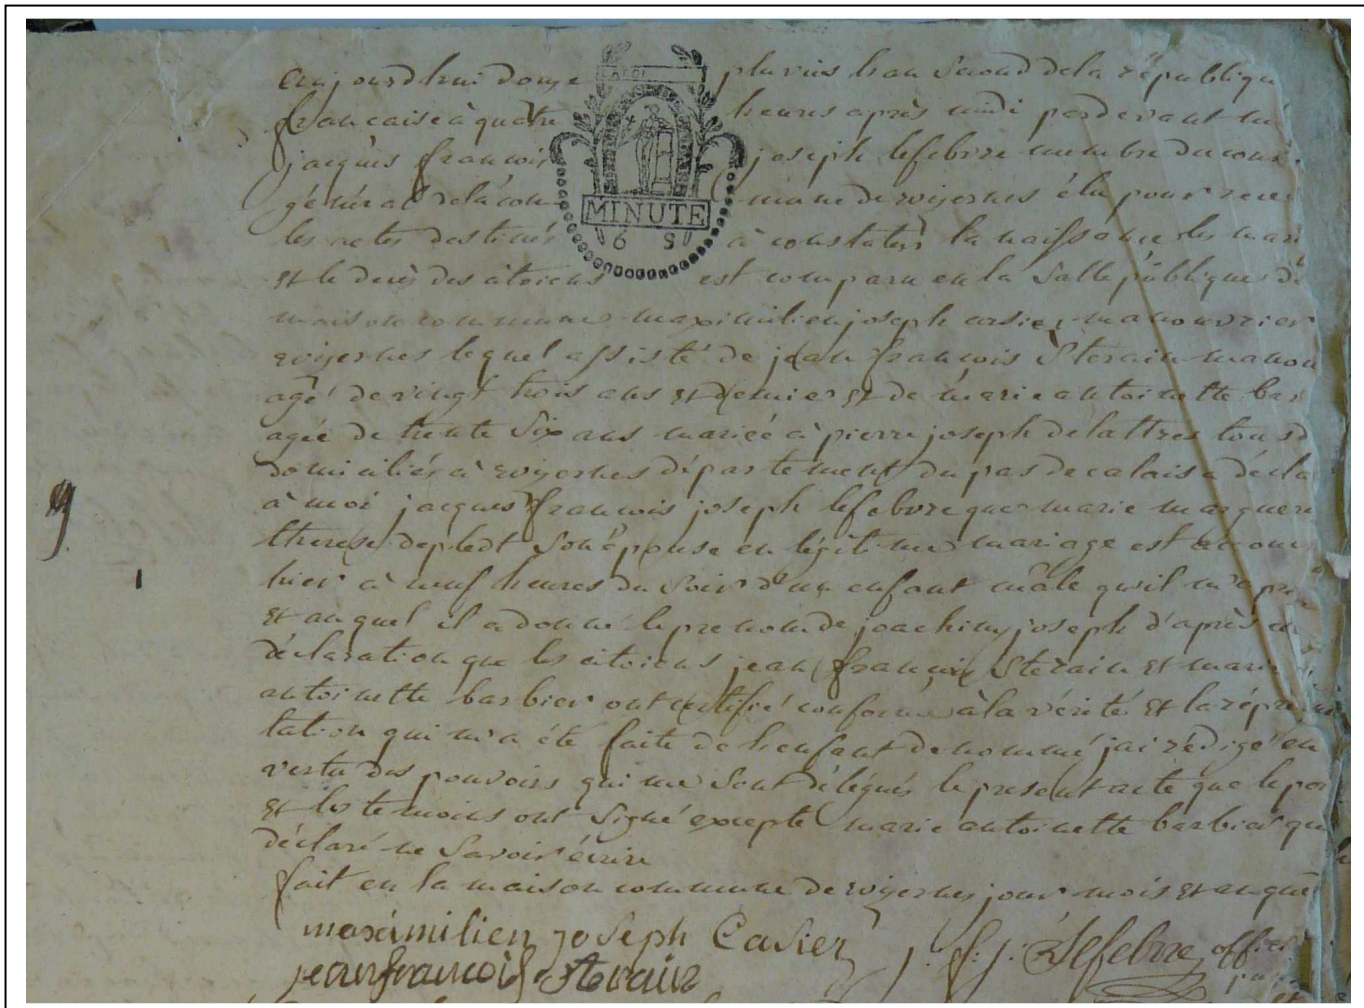 aujourd'hui douze pluvios l'an second de la républiqu
francaise à quatre heures après midi pardevant m
jacques francois joseph lefebvre membre du cons
général de la com mune de wizernes élu pour rece
les actes destinés à constater la naissance les mari
et le decès des citoiens est comparu en la salle publique de
maison commune maximilien joseph casier manouvrier
wizernes lequel assisté de jean francois Sterain manou
agé de vingt trois ans et demie et de marie antoinette bar
agée de trente six ans mariée à pierre joseph delattres tous
domiciliés à wizernes département du pas de calais a décla
à moi jacques francois joseph lefebvre que marie margueri
therese son épouse en légitime mariage est accou
hier à neuf heures du soir d'un enfant mâle qu'il m'a pre
et auquel il a donné le prenom de joachim joseph d'après
déclaration que les citoiens jean francois Sterain et mari
antoinette barbier ont certifié conforme à la vérité et la répresen
tation qui m'a été faite de l'enfant denommé j'ai rédigé en
vertu des pouvoirs qui me sont délégués le present acte que le per
et les temoins ont signé excepté marie antoinette barbier qu
déclaré ne savoir écrire
fait en la maison commune de wizernes jour mois et an que
maximilien joseph Casier j. f. j. Lefebvre offici
jean francois Sterain
MINUTE
6 S